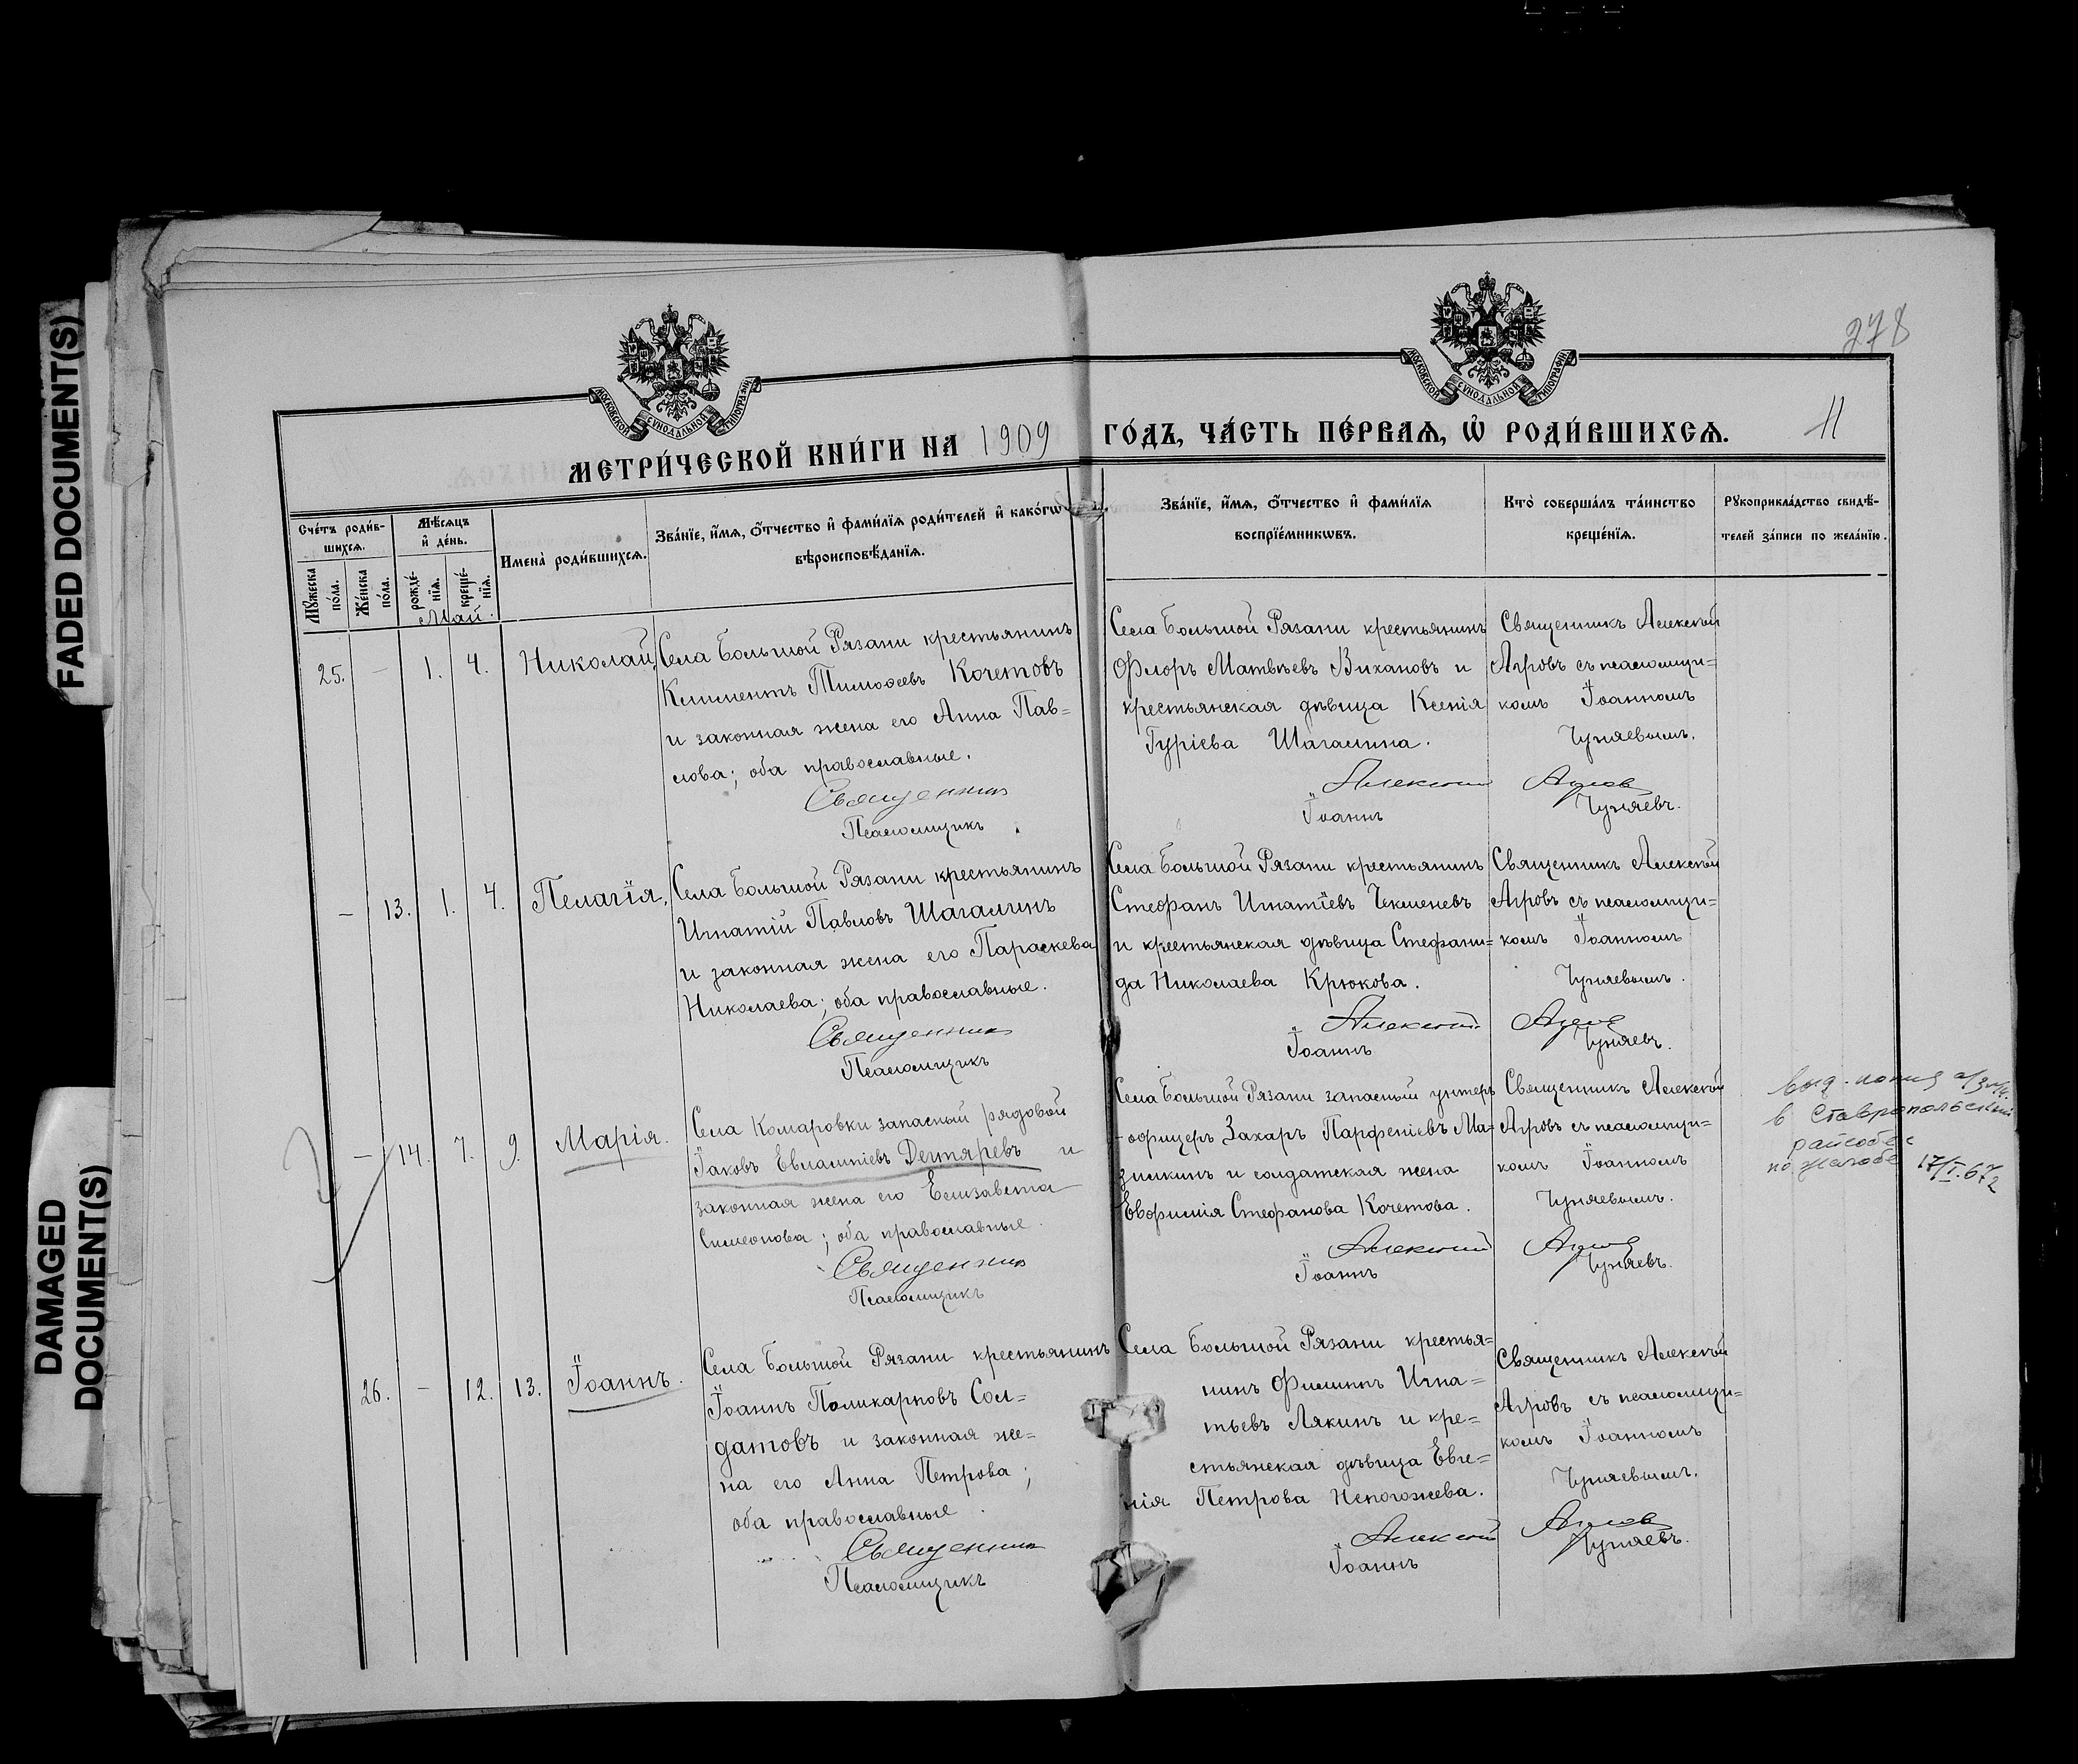 FADED DOCUMENT(S)
DAMAGED
DOCUMENT(S)
278
11
МОСКОВСКОЙ СѴНОДАЛЬНОЙ ТИПОГРАФІИ
МОСКОВСКОЙ СѴНОДАЛЬНОЙ ТИПОГРАФІИ
МЕТРИ́ЧЕСКОЙ КНИ́ГИ НА 1909 ГО́ДЪ, ЧА́СТЬ ПЕ́РВАѦ, Ѡ РОДИ́ВШИХСѦ.
Сче́тъ роди́в-
шихсѧ.
Мꙋ́жеска
по́ла.
Же́нска
по́ла.
Мѣ́сѧцъ
и҆ де́нь.
рожде́-
нїѧ.
креще́-
нїѧ.
Имена̀ роди́вшихсѧ.
Зва́нїе, и҆́мѧ, ѻ҆́тчество и҆ фами́лїѧ роди́телей и҆ како́гѡ
вѣроисповѣ́данїѧ.
Зва́нїе, и҆́мѧ, ѻ҆́тчество и҆ фами́лїѧ
воспрїе́мникѡвъ.
Кто̀ соверша́лъ та́инство
креще́нїѧ.
Рꙋкоприкла́дство свидѣ́-
телей за́писи по жела́нїю.
Май.
25. — 1. 4. Николай.
Села Большой Рязани крестьянинъ
Климентъ Тимоѳеевъ Кочетовъ
и законная жена его Анна Пав=
лова; оба православные.
Священник
Псаломщикъ
Села Большой Рязани крестьянинъ
Флоръ Матвѣевъ Вихановъ и
крестьянская дѣвица Ксенія
Гуріева Шагалина.
Алексий
Іоаннъ
Священникъ Алексѣй
Агровъ съ псаломщи=
комъ Іоанномъ
Чуняевымъ.
Агров
Чуняевъ.
— 13. 1. 4. Пелагія.
Села Большой Рязани крестьянинъ
Игнатій Павловъ Шагалинъ
и законная жена его Параскева
Николаева; оба православные.
Священник
Псаломщикъ
Села Большой Рязани крестьянинъ
Стефанъ Игнатіевъ Чекменевъ
и крестьянская дѣвица Стефани=
да Николаева Крюкова.
Алексий
Іоаннъ
Священникъ Алексѣй
Агровъ съ псаломщи=
комъ Іоанномъ
Чуняевымъ.
Агров
Чуняевъ.
— 14. 7. 9. Марія.
Села Комаровки запасный рядовой
Іаковъ Евлампіевъ Дегтяревъ и
законная жена его Елизавета
Симеонова; оба православные.
Священник
Псаломщикъ
Села Большой Рязани запасный унтеръ
-офицеръ Захаръ Парфеніевъ Ма=
зилкинъ и солдатская жена
Евфимія Стефанова Кочетова.
Алексий
Іоаннъ
Священникъ Алексѣй
Агровъ съ псаломщи=
комъ Іоанномъ
Чуняевымъ.
Агров
Чуняевъ.
выд. копия
в Ставропольский
райсобес
по жалобе 17/I.67г
26. — 12. 13. Іоаннъ.
Села Большой Рязани крестьянинъ
Іоаннъ Поликарповъ Сол=
датовъ и законная же=
на его Анна Петрова;
оба православные.
Священник
Псаломщикъ
Села Большой Рязани крестья=
нинъ Филиппъ Игна=
тьевъ Лякинъ и кре=
стьянская дѣвица Евге=
нія Петрова Непогожева.
Алексий
Іоаннъ
Священникъ Алексѣй
Агровъ съ псаломщи=
комъ Іоанномъ
Чуняевымъ.
Агров
Чуняевъ.